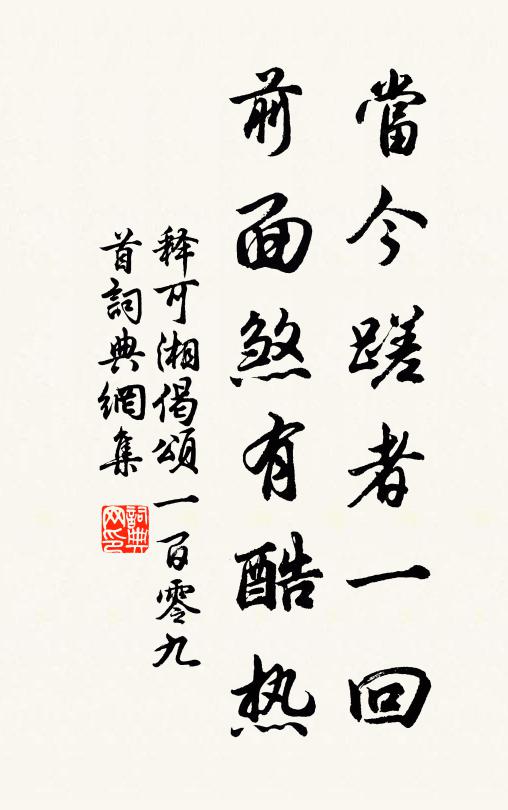 當今蹉者一回
前面煞有酷热
释可湘偈頌一百零九
首詞典網集
詞典
网印